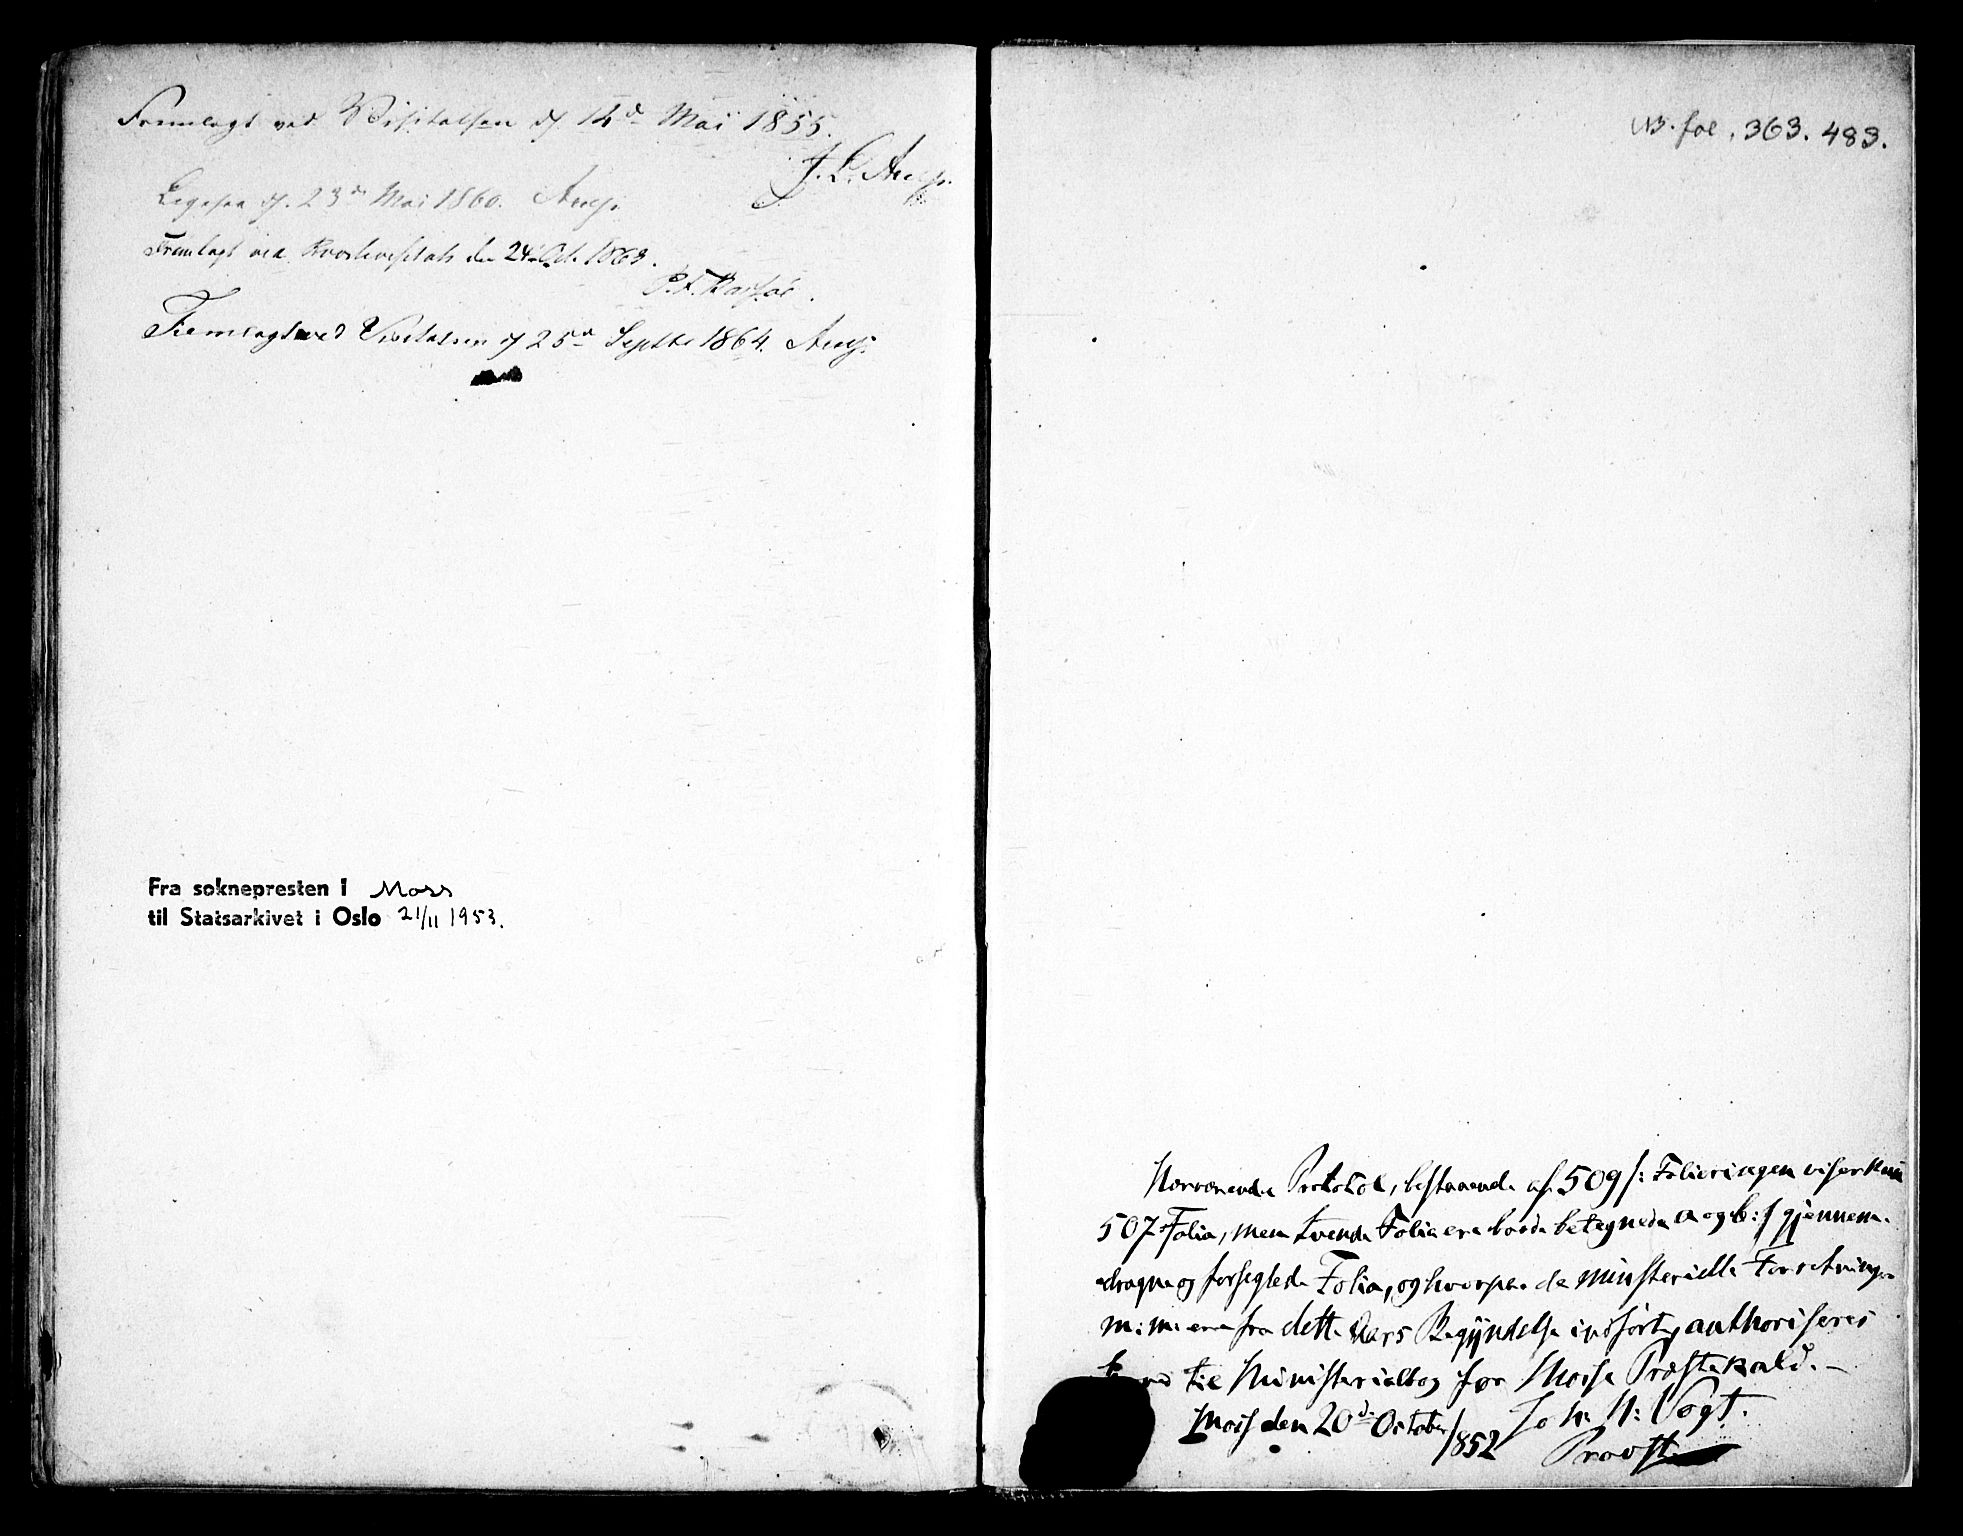 Fremlagt ved Visitatsen d. 14de Mai 1855.
J. L. Arup.
Ligesaa d. 23de Mai 1860. Arup.
Fremlagt ved Provstevisitats den 24 Oct. 1863.
Fremlagt ved Visitatsen d 25de Septbr 1864. Arup.
Fra soknepresten i Moss
til Statsarkivet i Oslo 21/11 1953.
NB. fol. 363. 483.
Nærværende Protokol, bestaaende af 509 /: Folieringen viser kun
507 Folia, men tvende Folia ere baade betegnede a og b :/ gjennem-
dragne og forseglede Folia, og hvorpaa de ministerielle Forretninger
m: m: ere fra dette Aars Begyndelse indført, authoriseres
til Ministerialbog for Moss Præstekald. -
Moss den 20de October 1852 Joh. H: Vogt.
Provst